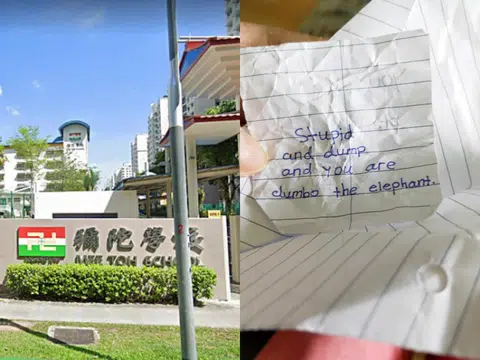 彌陀學校
MEE TOH SCHOOL
Stupid
and dump
and you are
dumbo the elephant.